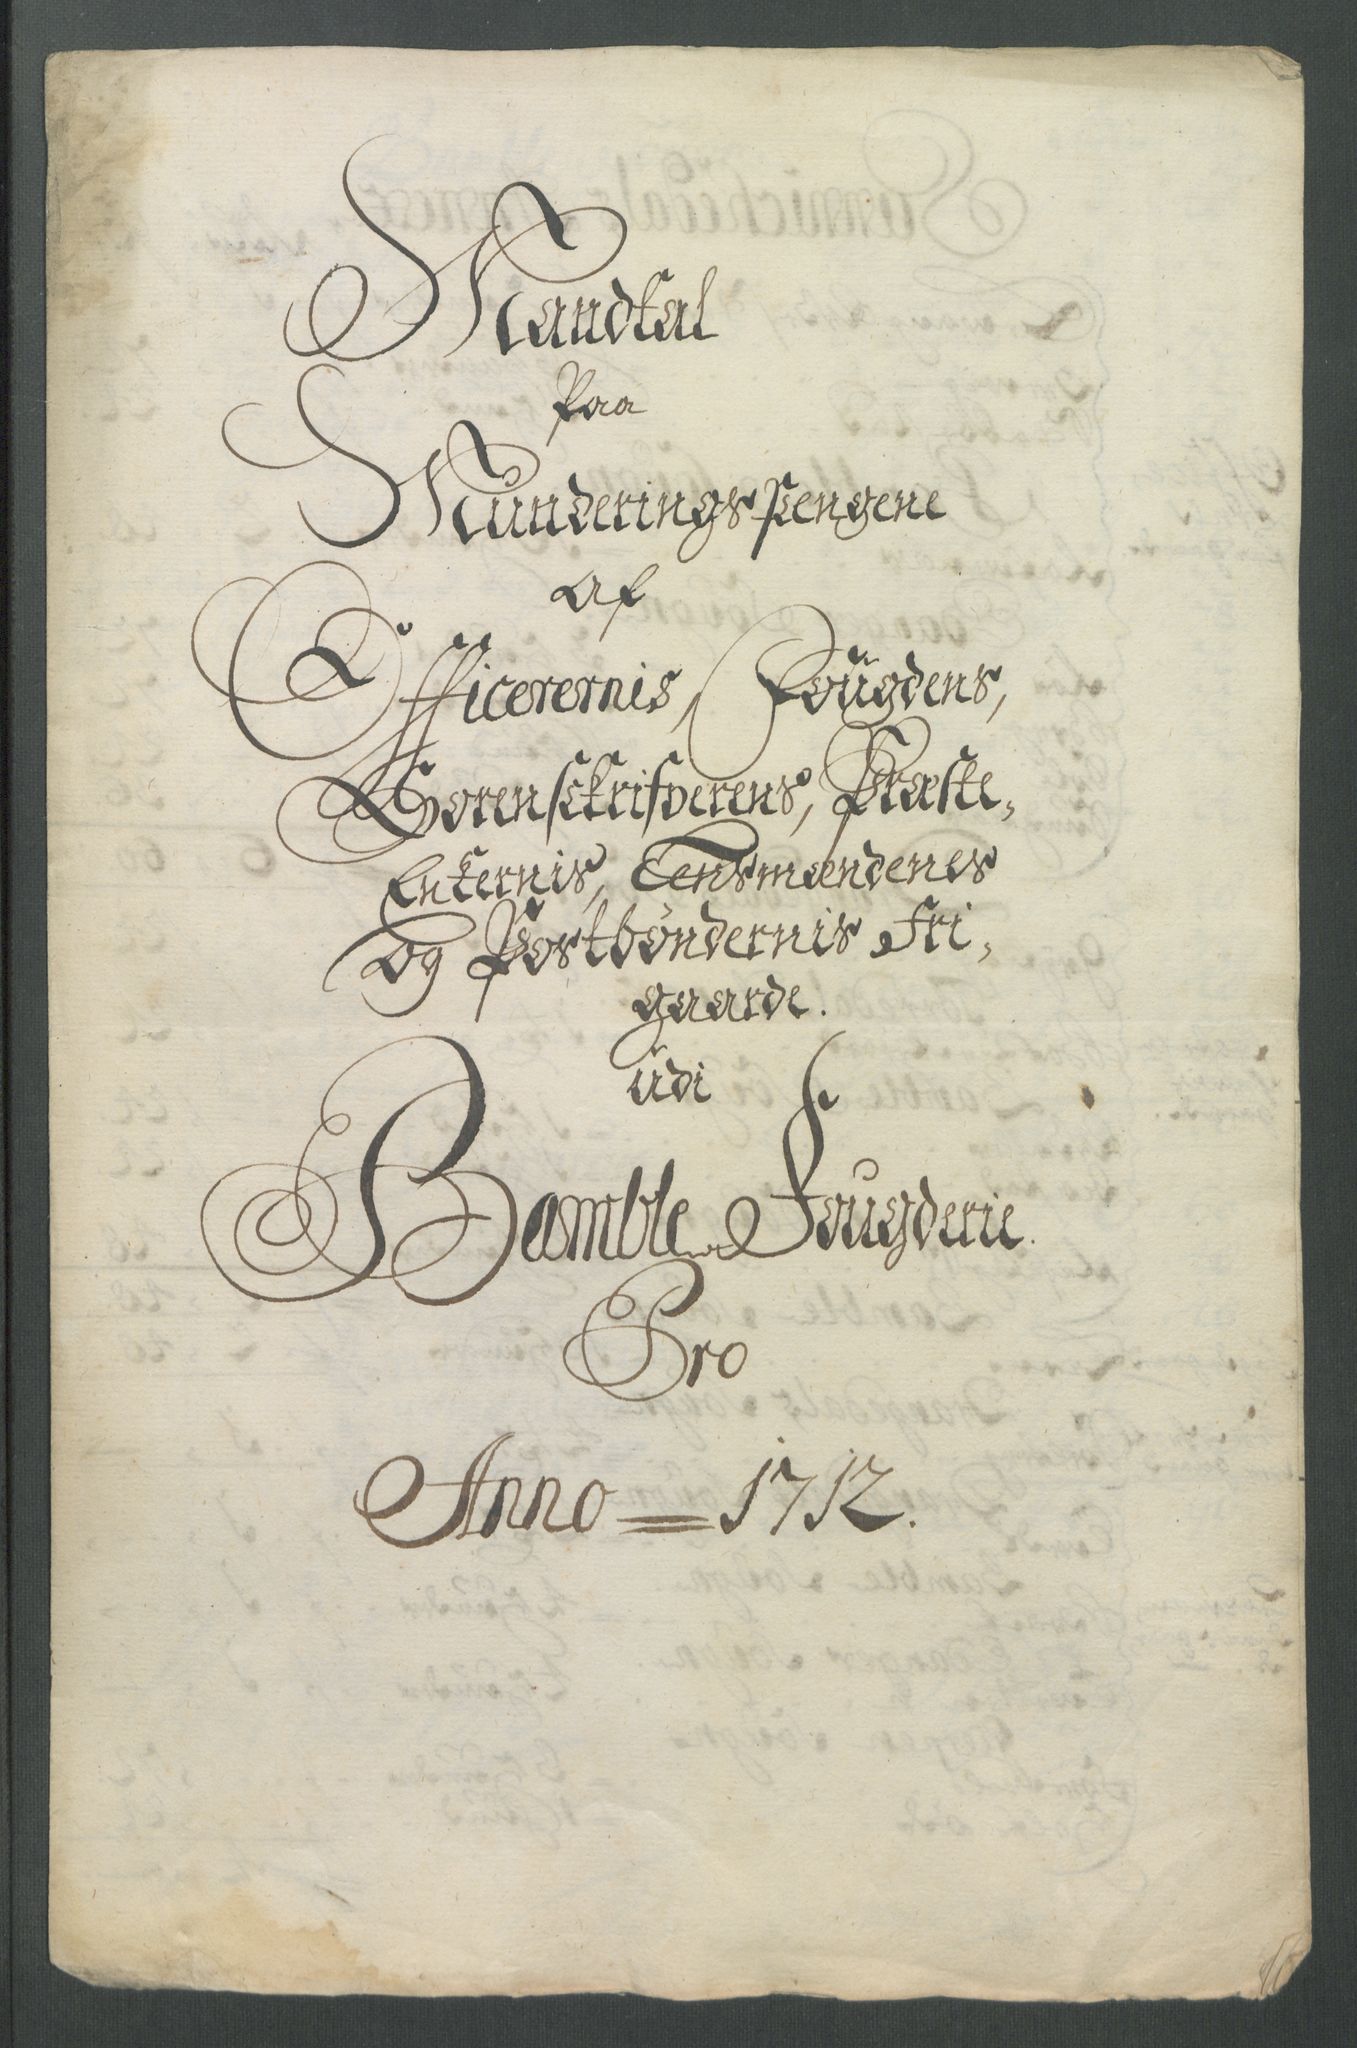 Mandtal
Paa
Munderings Pengene
af
Officerernis, Fougdens,
Sorenschrifverens, Præste,
Enkernis, Lensmændenes
og Postböndernis Fri,
gaarde.
udi
Bamble Fougderie.
Pro
Anno = 1712.